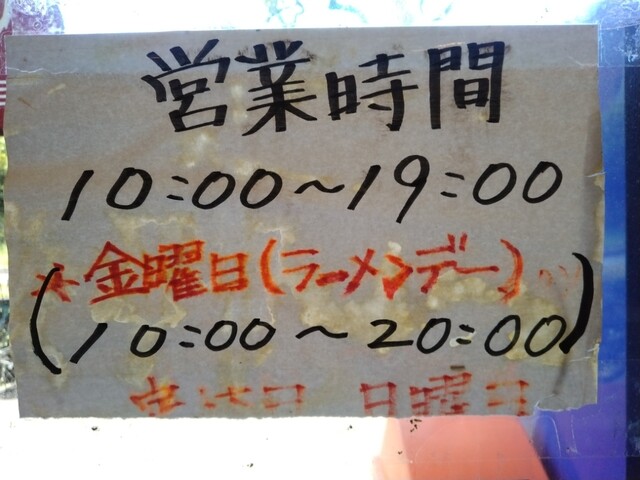 営業時間
10:00〜19:00
※金曜日(ラーメンデー)
(10:00〜20:00)
定休日 日曜日